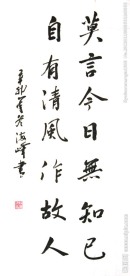 莫言今日無知己
自有清風作故人
海峰書